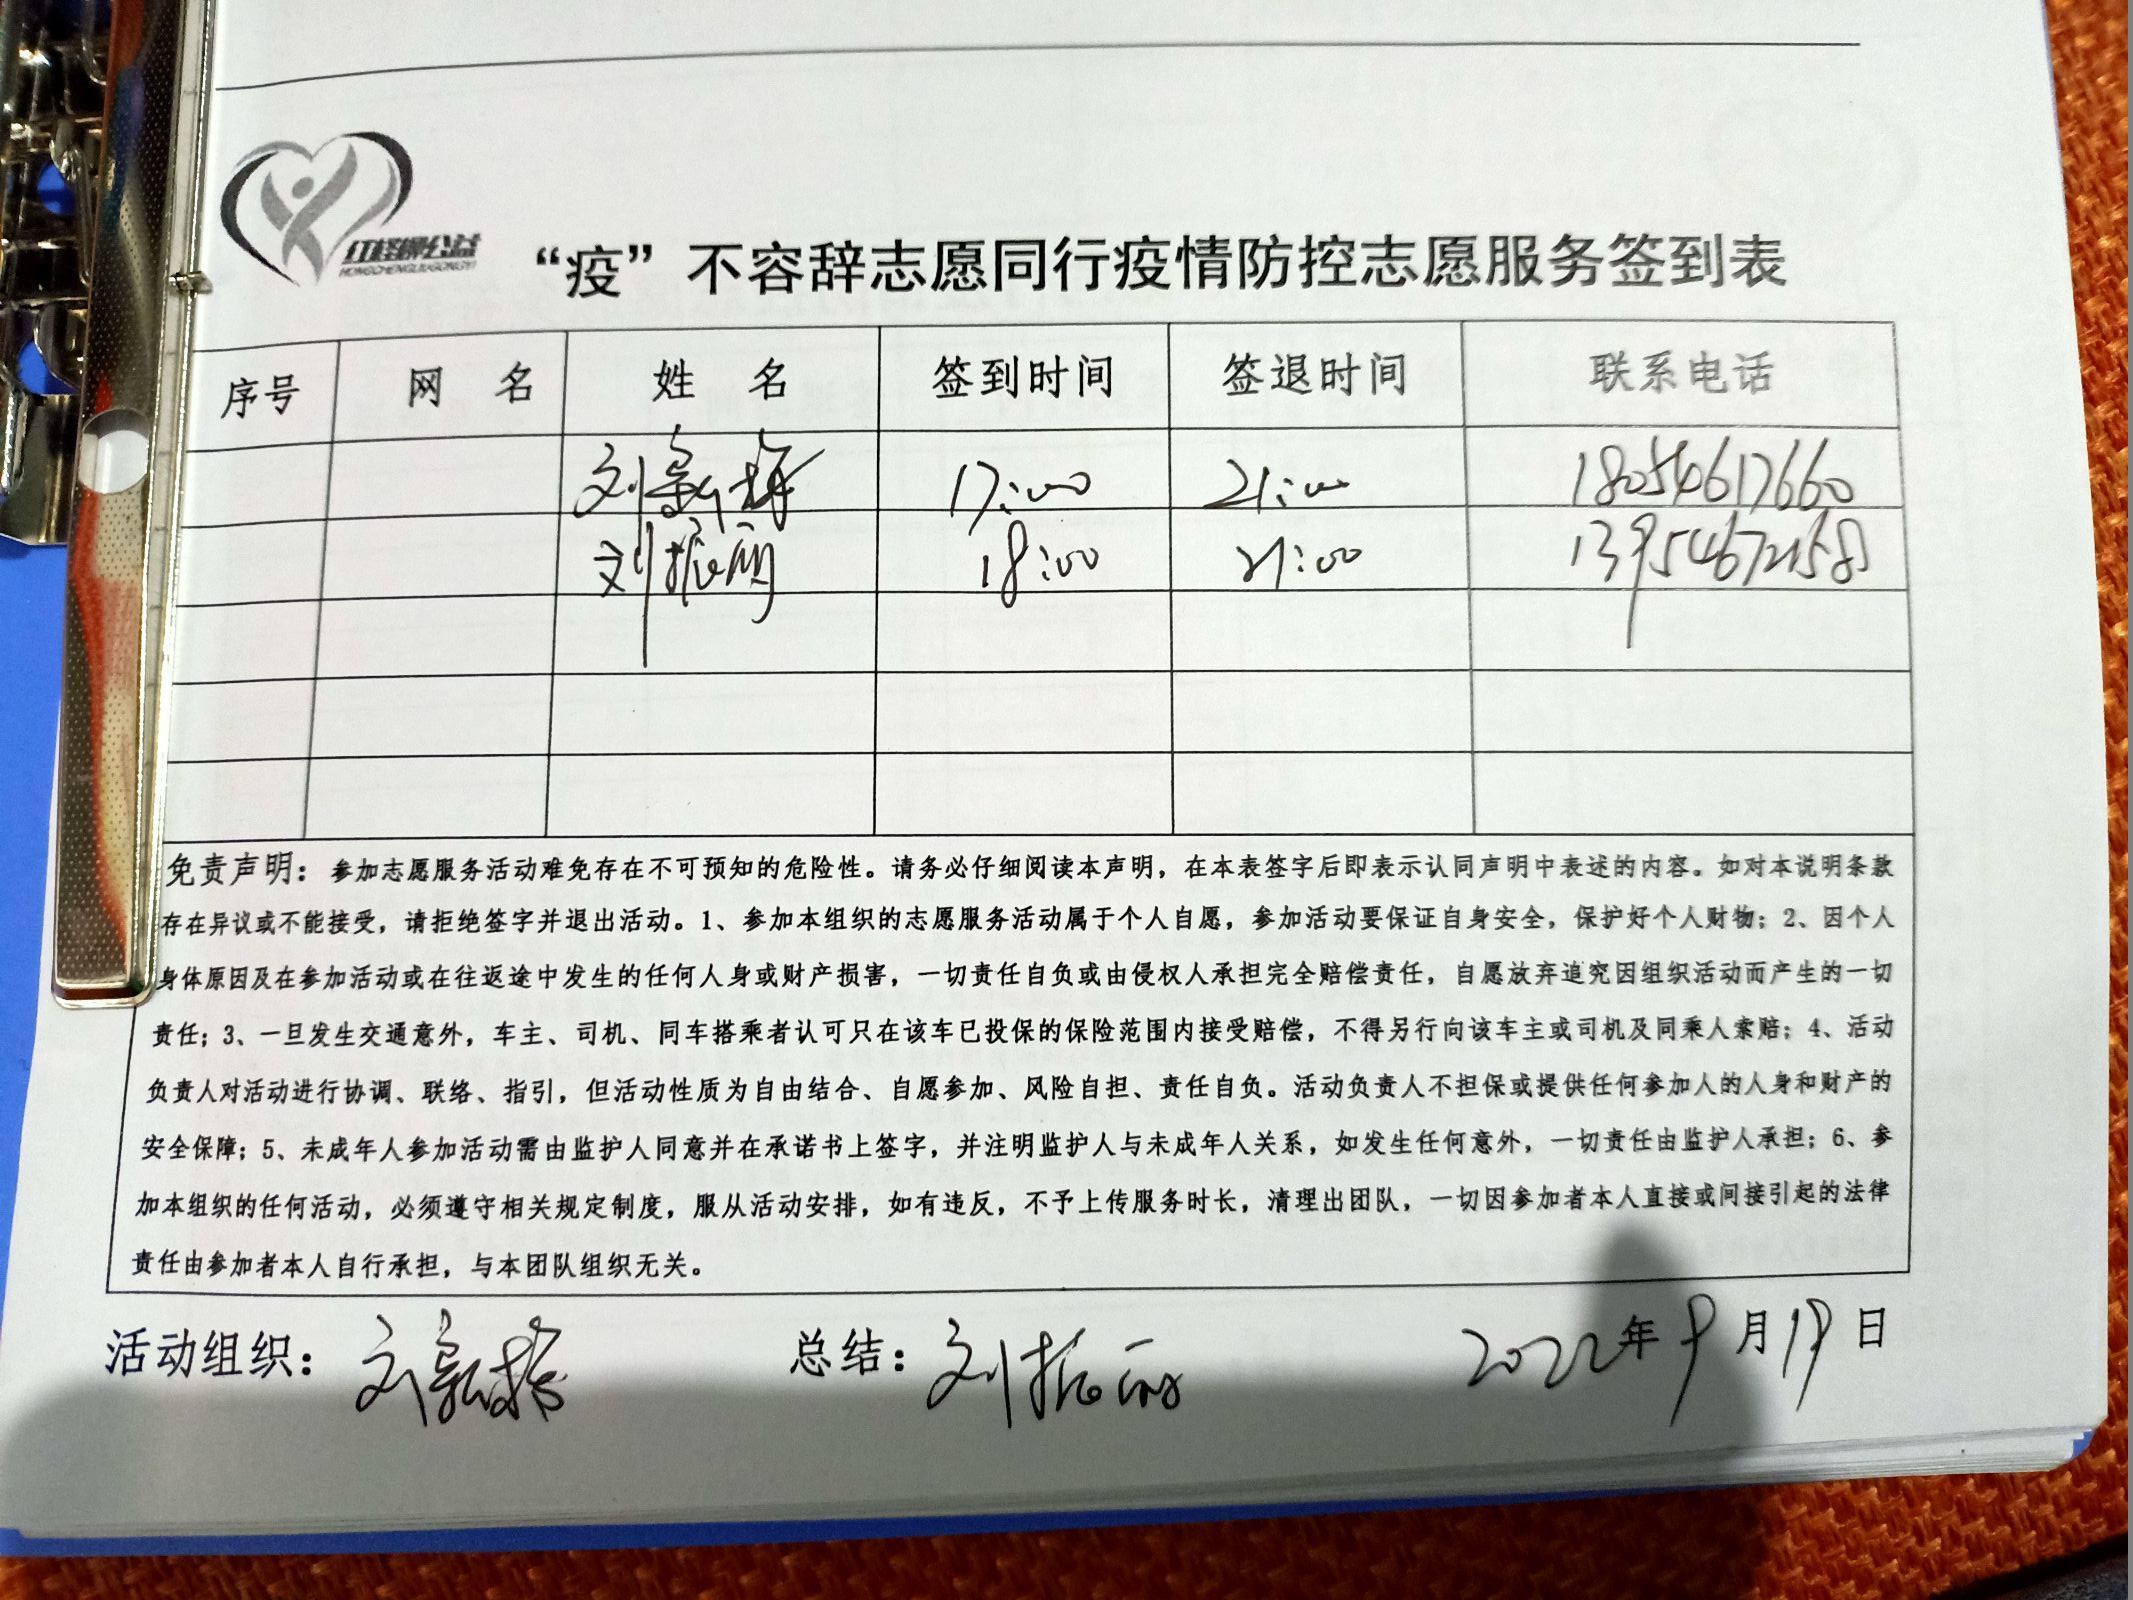 红橙柳公益
HONGCHENGLIUGONGYI
“疫”不容辞志愿同行疫情防控志愿服务签到表
序号 网 名 姓 名 签到时间 签退时间 联系电话
刘新梅 17:00 21:00 18054617660
刘振丽 18:00 21:00
免责声明：参加志愿服务活动难免存在不可预知的危险性。请务必仔细阅读本声明，在本表签字后即表示认同声明中表述的内容。如对本说明条款
存在异议或不能接受，请拒绝签字并退出活动。1、参加本组织的志愿服务活动属于个人自愿，参加活动要保证自身安全，保护好个人财物；2、因个人
身体原因及在参加活动或在往返途中发生的任何人身或财产损害，一切责任自负或由侵权人承担完全赔偿责任，自愿放弃追究因组织活动而产生的一切
责任；3、一旦发生交通意外，车主、司机、同车搭乘者认可只在该车已投保的保险范围内接受赔偿，不得另行向该车主或司机及同乘人索赔；4、活动
负责人对活动进行协调、联络、指引，但活动性质为自由结合、自愿参加、风险自担、责任自负。活动负责人不担保或提供任何参加人的人身和财产的
安全保障；5、未成年人参加活动需由监护人同意并在承诺书上签字，并注明监护人与未成年人关系，如发生任何意外，一切责任由监护人承担；6、参
加本组织的任何活动，必须遵守相关规定制度，服从活动安排，如有违反，不予上传服务时长，清理出团队，一切因参加者本人直接或间接引起的法律
责任由参加者本人自行承担，与本团队组织无关。
活动组织：刘新梅 总结：刘振丽 2022年9月19日